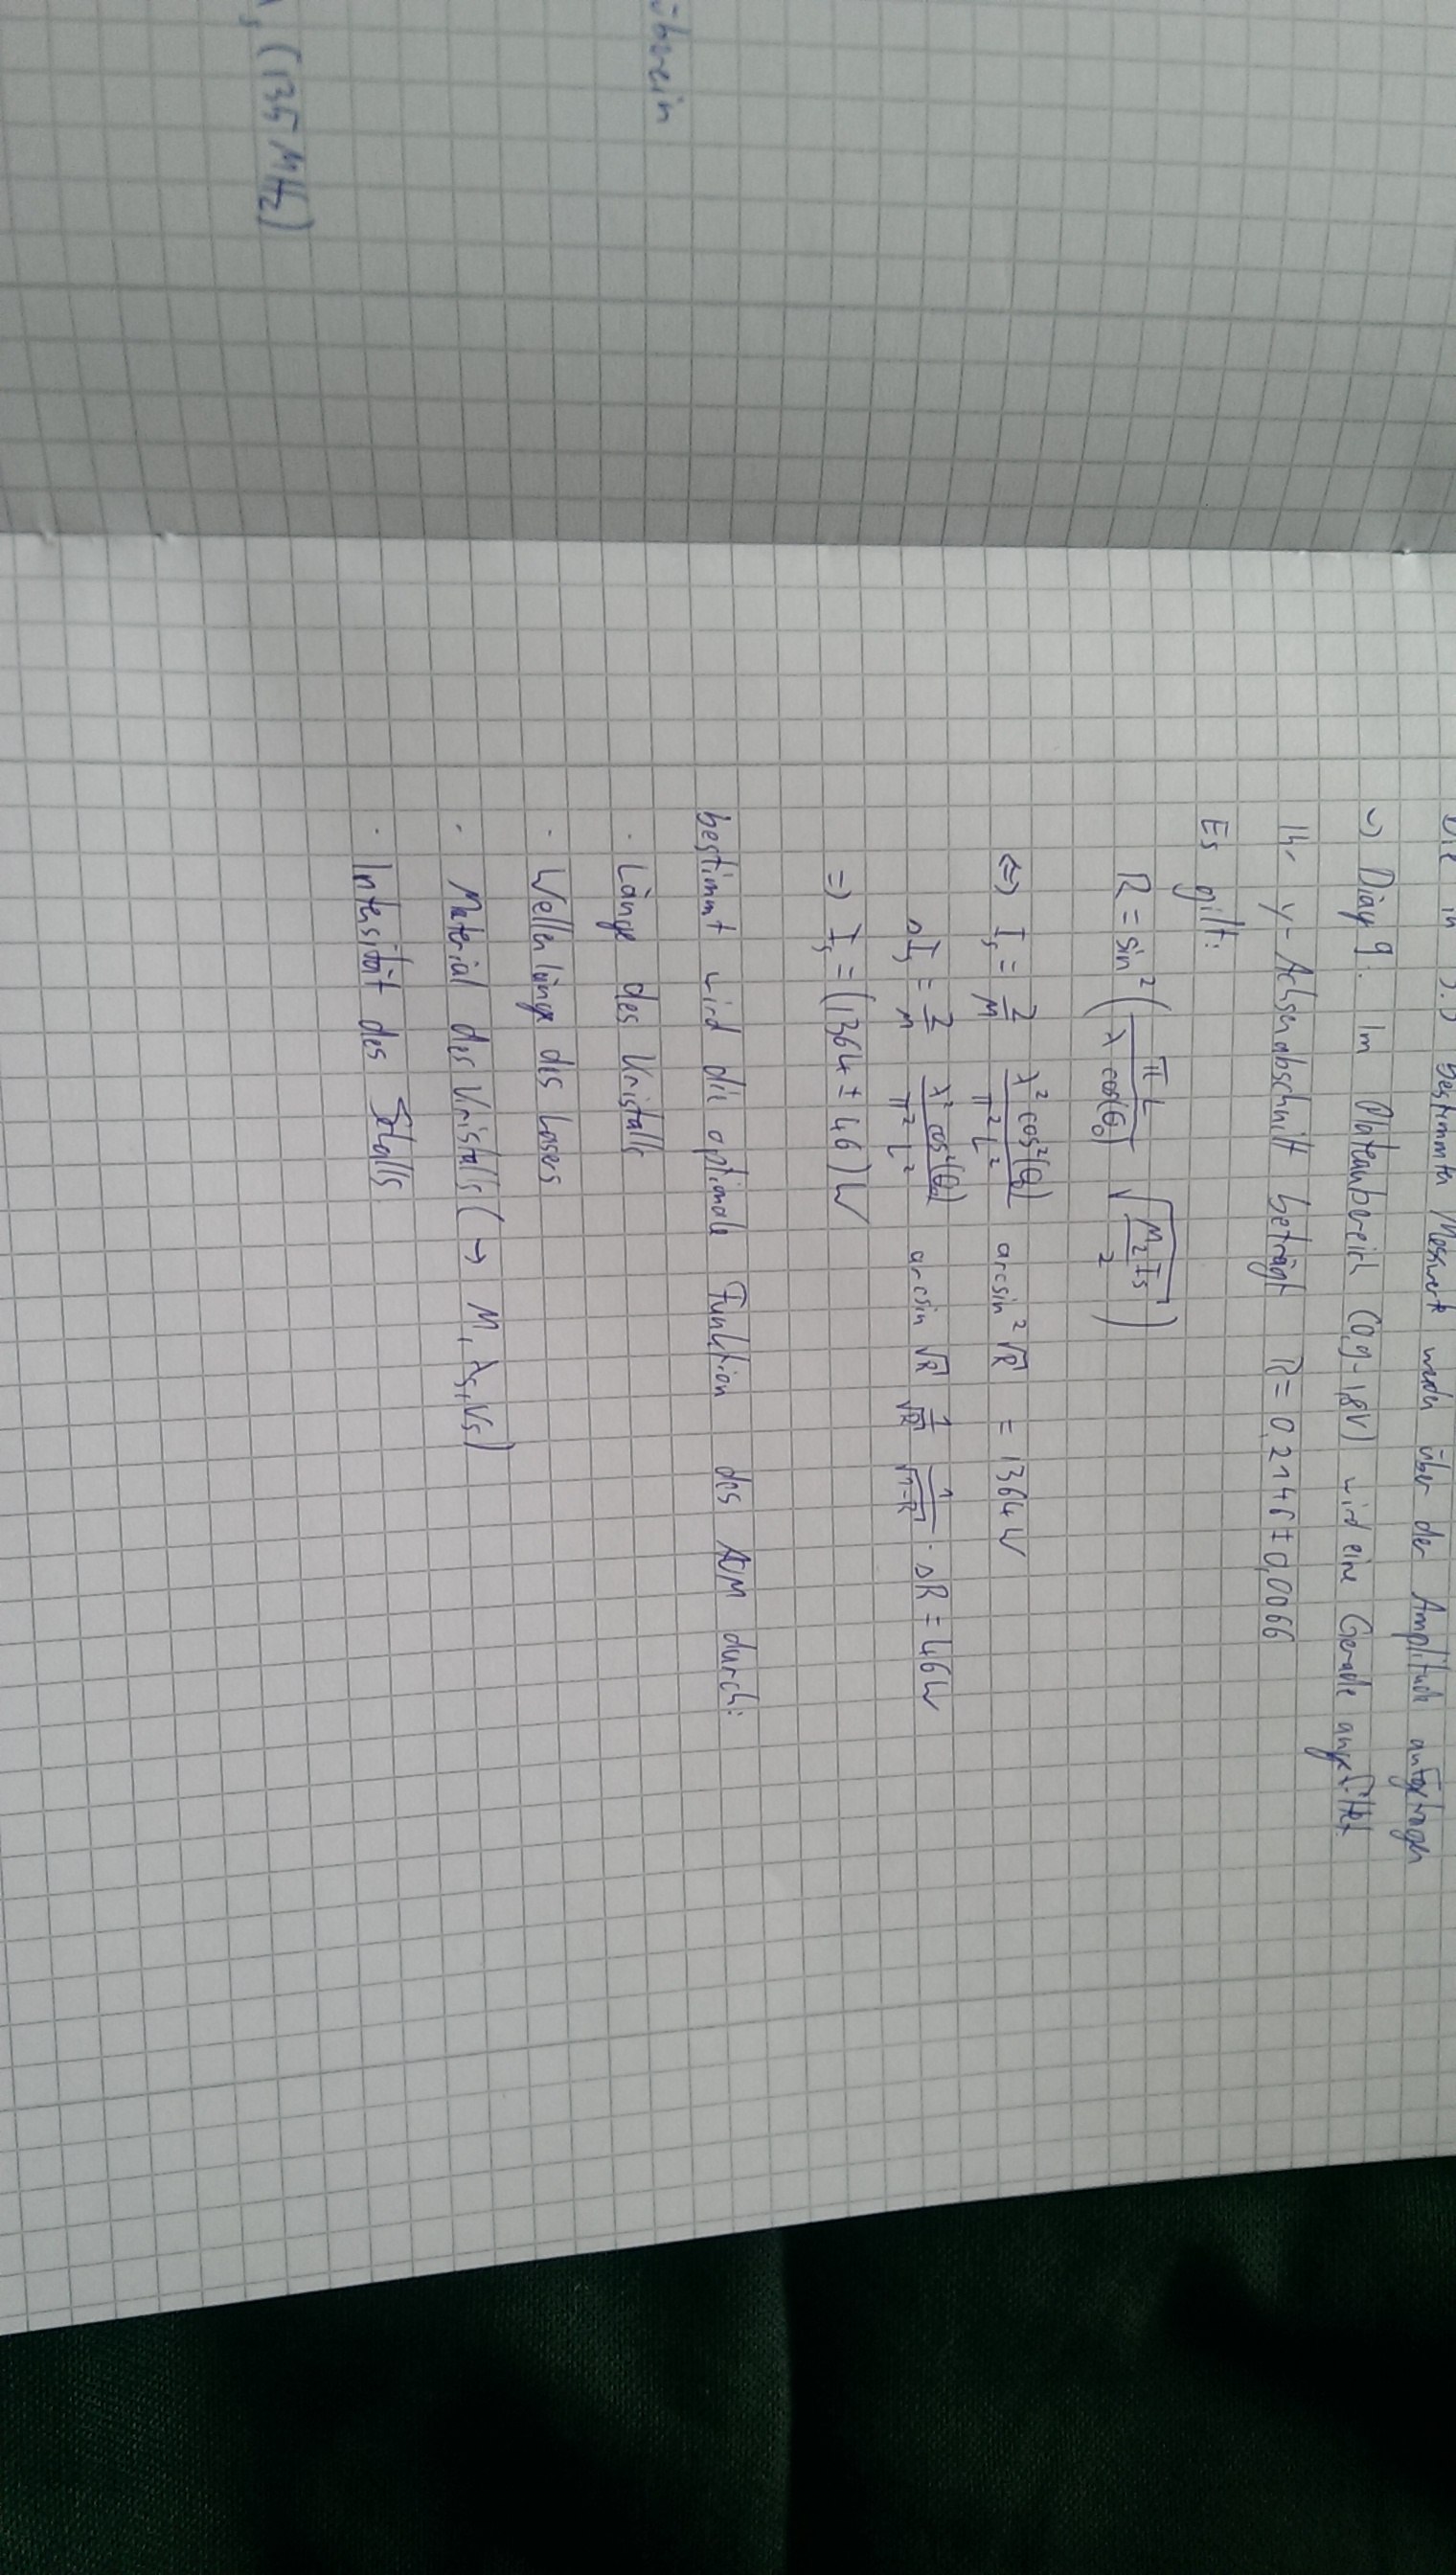 überein
(135 MHz)
Die in 3.5 bestimmten Messwerte werden über der Amplitude aufgetragen
Diag 9. Im Plateaubereich (0,9-1,8V) wird eine Gerade angefittet
Ihr y-Achsenabschnitt beträgt R = 0,2146 ± 0,0066
Es gilt:
R = sin² ( π L / λ cos(θ₀) √(M₂ Is / 2) )
⇔ Is = 2/M λ² cos²(θ₀) / π² L² arcsin² √R = 1364 W
ΔIs = 2/M λ² cos²(θ₀) / π² L² arcsin √R 1/√R 1/√(1-R) · ΔR = 46 W
⇒ Is = (1364 ± 46) W
bestimmt wird die optimale Funktion des AOM durch:
· Länge des Kristalls
· Wellenlänge des Lasers
· Material des Kristalls (→ M, λs, Vs)
· Intensität des Schalls